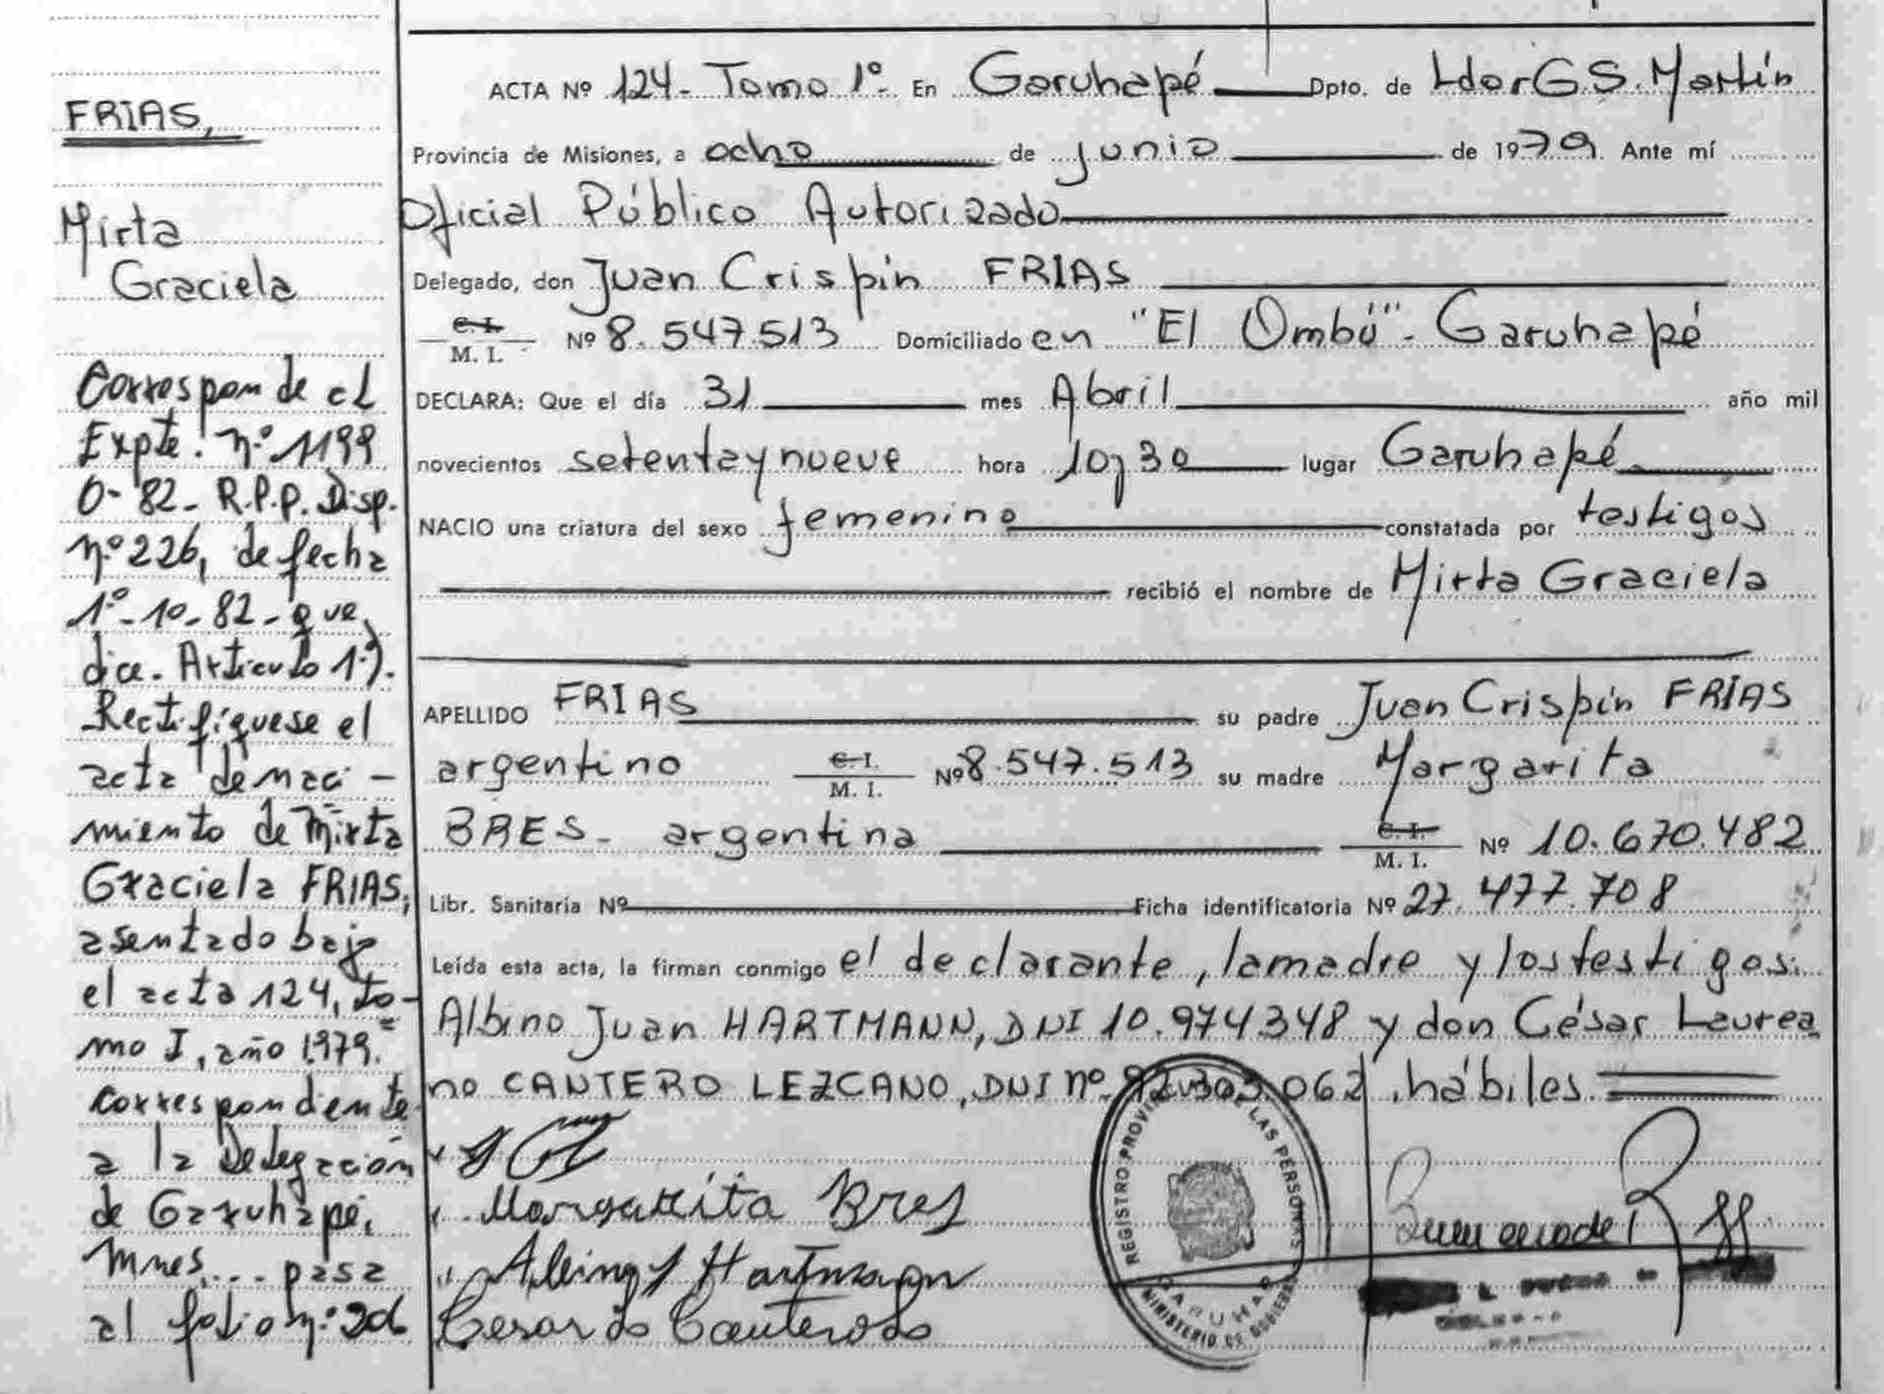 FRIAS,
Mirta
Graciela
Corresponde al
Expte. nº 1199
0-82- R.P.P. Disp.
nº 226, de fecha
1º-10-82- que
dice. Artículo 1º).
Rectifíquese el
acta de naci-
miento de Mirta
Graciela FRIAS,
asentado bajo
el acta 124, to-
mo I, año 1979.
correspondiente
a la Delegación
de Garuhapé,
Mnes... pasa
al folio nº 206
ACTA Nº 124- Tomo 1º- En Garuhapé Dpto. de Ldor G S. Martín
Provincia de Misiones, a ocho de junio de 1979. Ante mí
Oficial Público Autorizado
Delegado, don Juan Crispín FRIAS
C. I. M. I. Nº 8.547.513 Domiciliado en "El Ombú"- Garuhapé
DECLARA: Que el día 31 mes Abril año mil
novecientos setenta y nueve hora 10,30 lugar Garuhapé
NACIO una criatura del sexo femenino constatada por testigos
recibió el nombre de Mirta Graciela
APELLIDO FRIAS su padre Juan Crispín FRIAS
argentino C. I. M. I. Nº 8.547.513 su madre Margarita
BRES- argentina C. I. M. I. Nº 10.670.482
Libr. Sanitaria Nº Ficha identificatoria Nº 27.477.708
Leída esta acta, la firman conmigo el declarante, la madre y los testigos:
Albino Juan HARTMANN, DNI 10.974348 y don César Laurea
no CANTERO LEZCANO, DNI nº 92.303.062, hábiles.
Margarita Bres
Albino J Hartmann
Cesar Cantero
REGISTRO PROVINCIAL DE LAS PERSONAS
GARUHAPE
MINISTERIO DE GOBIERNO